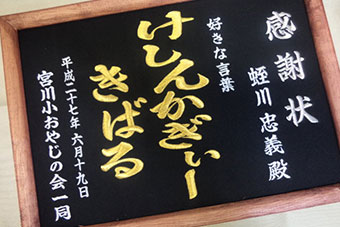 感謝状
蛭川忠義殿
好きな言葉
けしんかぎぃー
きばる
平成二十七年六月十九日
宮川小おやじの会一同